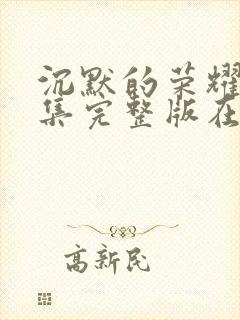 沉默的荣耀
集完整版在
高新民